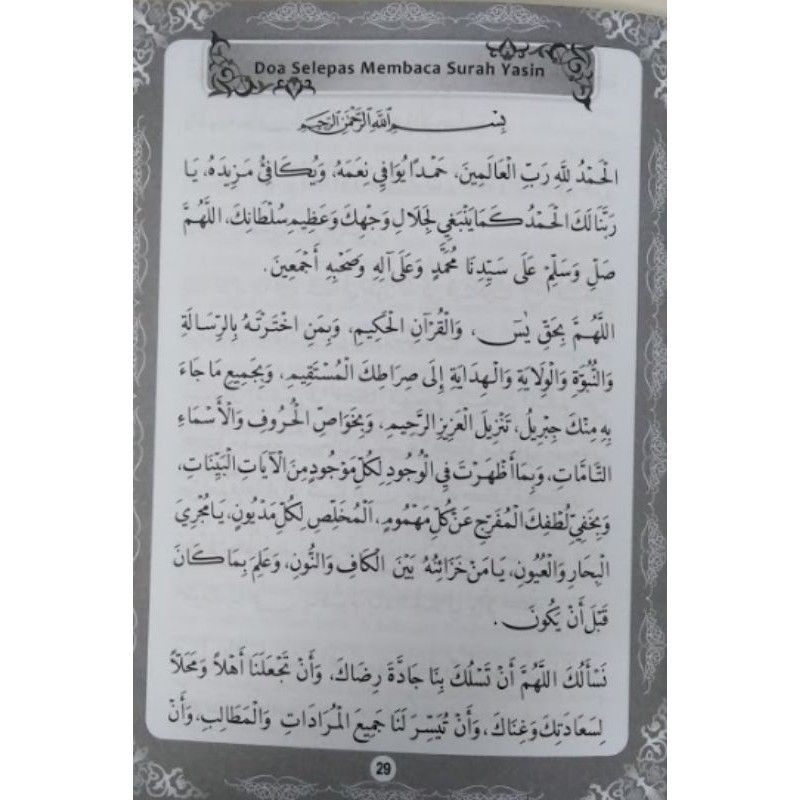 Doa Selepas Membaca Surah Yasin
بِسْمِ اللَّهِ الرَّحْمَٰنِ الرَّحِيمِ
الْحَمْدُ لِلَّهِ رَبِّ الْعَالَمِينَ، حَمْدًا يُوَافِي نِعَمَهُ، وَيُكَافِئُ مَزِيدَهُ، يَا
رَبَّنَا لَكَ الْحَمْدُ كَمَا يَنْبَغِي لِجَلَالِ وَجْهِكَ وَعَظِيمِ سُلْطَانِكَ، اللَّهُمَّ
صَلِّ وَسَلِّمْ عَلَى سَيِّدِنَا مُحَمَّدٍ وَعَلَى آلِهِ وَصَحْبِهِ أَجْمَعِينَ.
اللَّهُمَّ بِحَقِّ يٰسٓ، وَالْقُرْآنِ الْحَكِيمِ، وَبِمَنِ اخْتَرْتَهُ بِالرِّسَالَةِ
وَالنُّبُوَّةِ وَالْوِلَايَةِ وَالْهِدَايَةِ إِلَى صِرَاطِكَ الْمُسْتَقِيمِ، وَبِجَمِيعِ مَا جَاءَ
بِهِ مِنْكَ جِبْرِيلُ، تَنْزِيلَ الْعَزِيزِ الرَّحِيمِ، وَبِخَوَاصِّ الْحُرُوفِ وَالْأَسْمَاءِ
التَّامَّاتِ، وَبِمَا أَظْهَرْتَ فِي الْوُجُودِ لِكُلِّ مَوْجُودٍ مِنَ الْآيَاتِ الْبَيِّنَاتِ،
وَبِخَفِيِّ لُطْفِكَ الْمُفَرِّجِ عَنْ كُلِّ مَهْمُومٍ، اَلْمُخَلِّصِ لِكُلِّ مَدْيُونٍ، يَا مُجْرِيَ
الْبِحَارِ وَالْعُيُونِ، يَا مَنْ خَزَائِنُهُ بَيْنَ الْكَافِ وَالنُّونِ، وَعَلِمَ بِمَا كَانَ
قَبْلَ أَنْ يَكُونَ.
نَسْأَلُكَ اللَّهُمَّ أَنْ تَسْلُكَ بِنَا جَادَّةَ رِضَاكَ، وَأَنْ تَجْعَلَنَا أَهْلًا وَمَحَلًّا
لِسَعَادَتِكَ وَغِنَاكَ، وَأَنْ تُيَسِّرَ لَنَا جَمِيعَ الْمُرَادَاتِ وَالْمَطَالِبِ، وَأَنْ
29